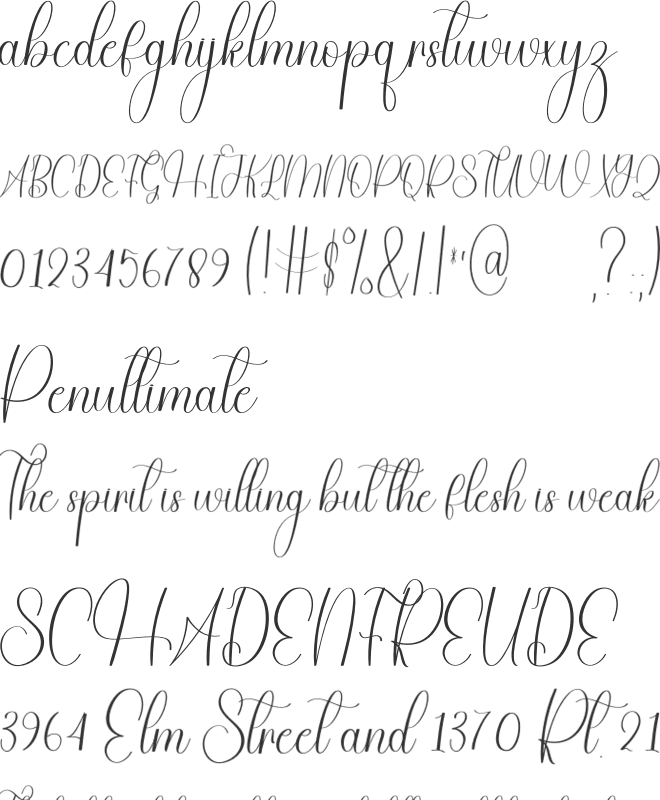 abcdefghijklmnopqrstuvwxyz
ABCDEFGHIJKLMNOPQRSTUVWXYZ
0123456789 (!#$%&/\|*"'@ ? , . : ; )
Penultimate
The spirit is willing but the flesh is weak
SCHADENFREUDE
3964 Elm Street and 1370 Rt. 21